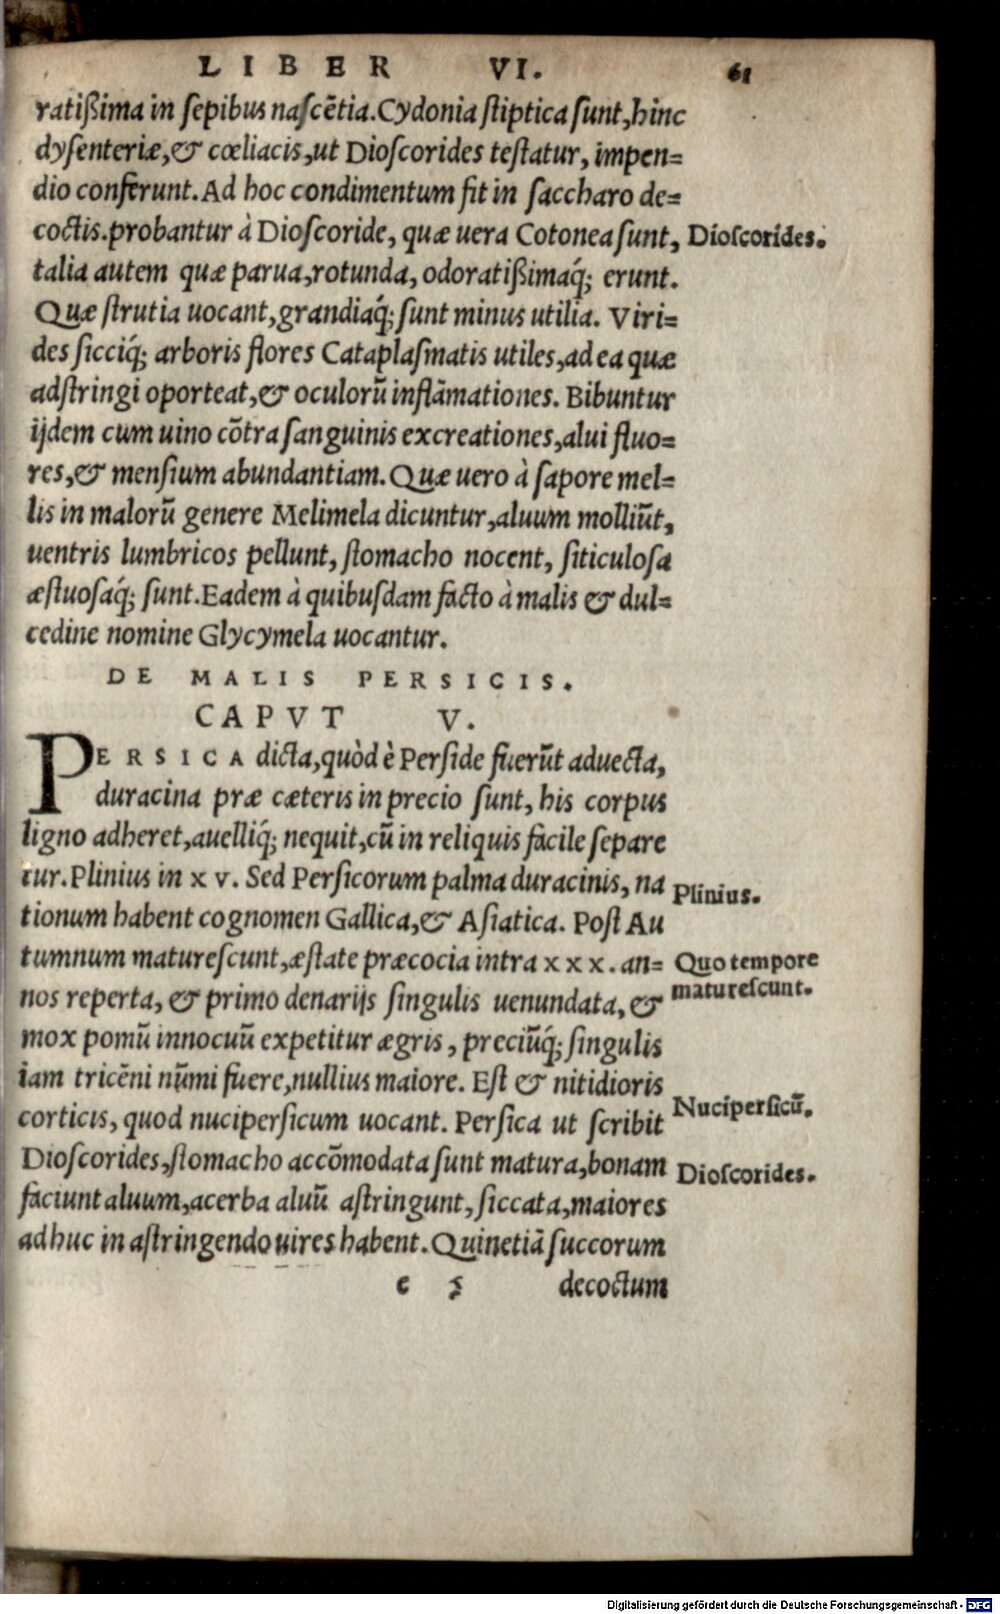 LIBER VI. 61
ratißima in sepibus nascẽtia. Cydonia stiptica sunt, hinc
dysenteriæ, & cœliacis, ut Dioscorides testatur, impen=
dio conferunt. Ad hoc condimentum fit in saccharo de=
coctis. probantur à Dioscoride, quæ uera Cotonea sunt, Dioscorides.
talia autem quæ parua, rotunda, odoratißimaq́; erunt.
Quæ strutia uocant, grandiaq́; sunt minus utilia. Viri=
des sicciq́; arboris flores Cataplasmatis utiles, ad ea quæ
adstringi oporteat, & oculorũ inflãmationes. Bibuntur
ijdem cum uino cõtra sanguinis excreationes, alui fluo=
res, & mensium abundantiam. Quæ uero à sapore mel=
lis in malorũ genere Melimela dicuntur, aluum molliũt,
uentris lumbricos pellunt, stomacho nocent, siticulosa
æstuosaq́; sunt. Eadem à quibusdam facto à malis & dul=
cedine nomine Glycymela uocantur.
DE MALIS PERSICIS.
CAPVT V.
PERSICA dicta, quòd è Perside fuerũt aduecta,
duracina præ cæteris in precio sunt, his corpus
ligno adheret, auelliq́; nequit, cũ in reliquis facile separe
tur. Plinius in xv. Sed Persicorum palma duracinis, na Plinius.
tionum habent cognomen Gallica, & Asiatica. Post Au
tumnum maturescunt, æstate præcocia intra xxx. an= Quo tempore
nos reperta, & primo denarijs singulis uenundata, & maturescunt.
mox pomũ innocuũ expetitur ægris, preciũq́; singulis
iam tricẽni nũmi fuere, nullius maiore. Est & nitidioris
corticis, quod nucipersicum uocant. Persica ut scribit Nucipersicũ.
Dioscorides, stomacho accõmodata sunt matura, bonam Dioscorides.
faciunt aluum, acerba aluũ astringunt, siccata, maiores
adhuc in astringendo uires habent. Quinetiã succorum
e 5 decoctum
Digitalisierung gefördert durch die Deutsche Forschungsgemeinschaft - DFG